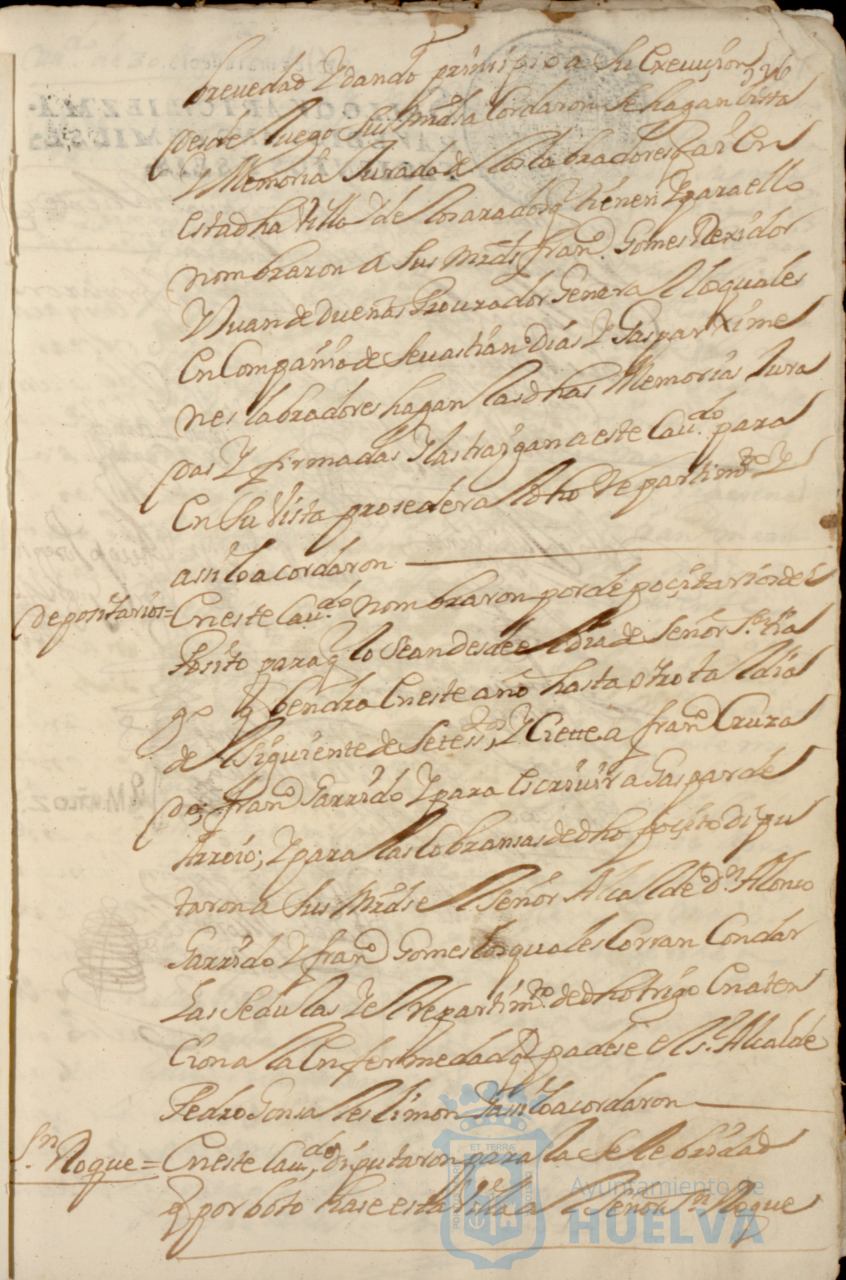 brevedad Y dando prinsipio a su Execusion
desde luego sus mrds acordaron se hagan lista
Y Memoria Jurada de los labradores q ai en
esta dha Villa Y de los arados q tienen Y para ello
nombraron a sus mrds franco. Gomes Rexidor
Y Juan de dueñas Procurador General los quales
En Compañia de Sevastian Dias Y Gaspar Xime
nes labradores hagan las dhas Memorias Jura
das Y firmadas Y las traigan a este Cauildo para
En su Vista proseder al dho repartimto Y
assi lo acordaron
Depositarios= En este Caudo nombraron por depocitarios del
Posito para q lo sean desde el dia de señor Stia
go q bendra En este año hasta otro tal dia
de el siguiente de Setess.tos Y Ciette a franco Cruza
do, franco Garrido Y para escriuir a Gaspar de
Arroio; Y para las Cobransas de dho pocito dipu
taron a sus Mrds el Señor Alcalde Dn Alonso
Garrido Y franco Gomes los quales Corran Con dar
las Sedulas Y el repartimto de dho trigo En aten
cion a la Enfermedad q padese el sr. Alcalde
Pedro Gonsales Limon Y assi lo acordaron
Sn. Roque= En este Caudo, diputaron para la Selebridad
q por boto hase esta Villa al Señor Sn Roque
Ayuntamiento de
HUELVA